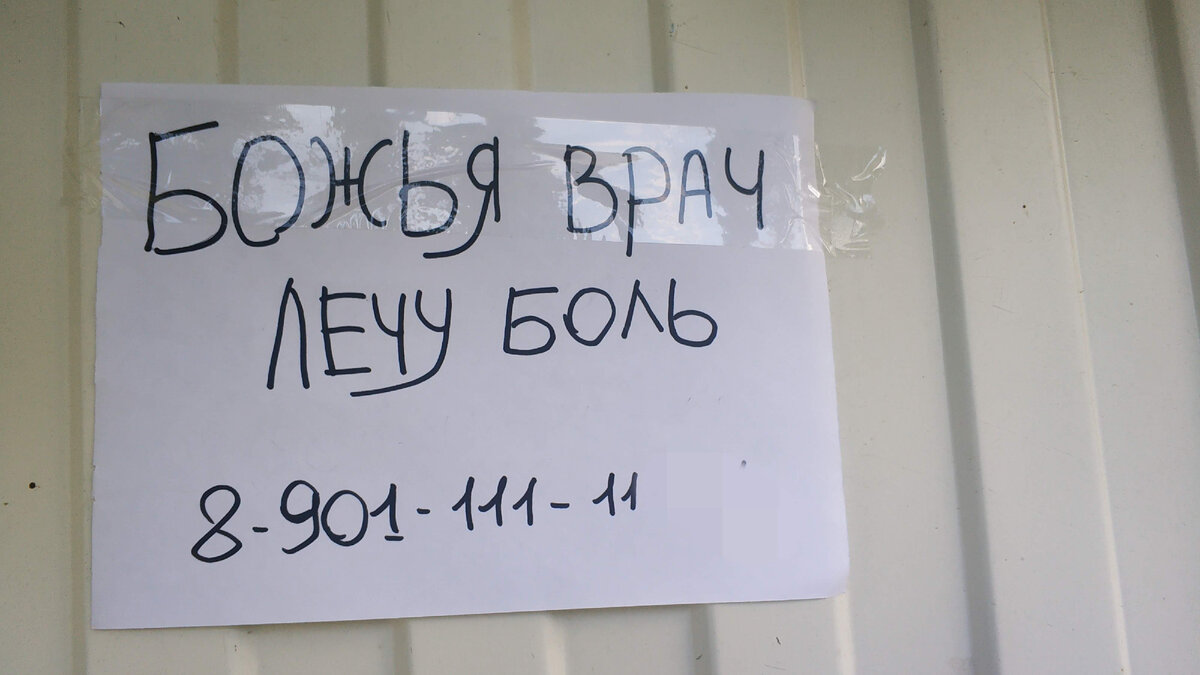 БОЖЬЯ ВРАЧ
ЛЕЧУ БОЛЬ
8-901-111-11